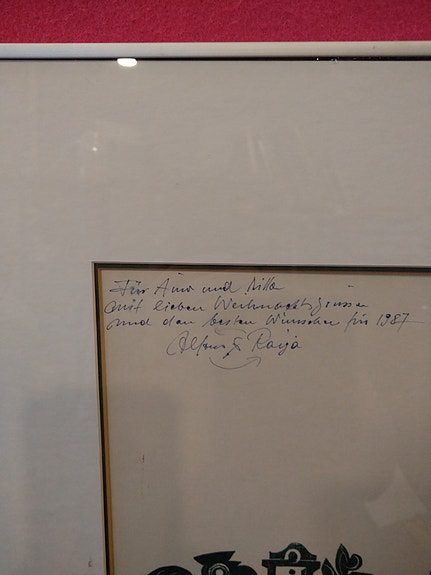 Für Aino und Rilla
mit lieben Weihnachtsgrüssen
und den besten Wünschen für 1987
& Raija